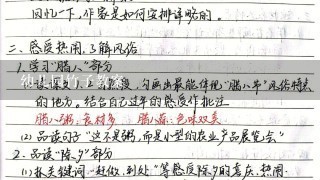 回忆一下,作家是如何安排详略的。
二、感受热闹,了解风俗
1.学习"腊八"部分
勾画出最能体现"腊八节"风俗特点
的地方。结合自己过年的感受作批注
腊八粥:食材多 腊八蒜:色味双美
(2)品读句子"这不是粥,而是小型的农业产品展览会"
2.品读"除夕"部分
(1)抓关键词"赶做、到处"等感受除夕的喜庆、热闹
幼儿园竹子教案